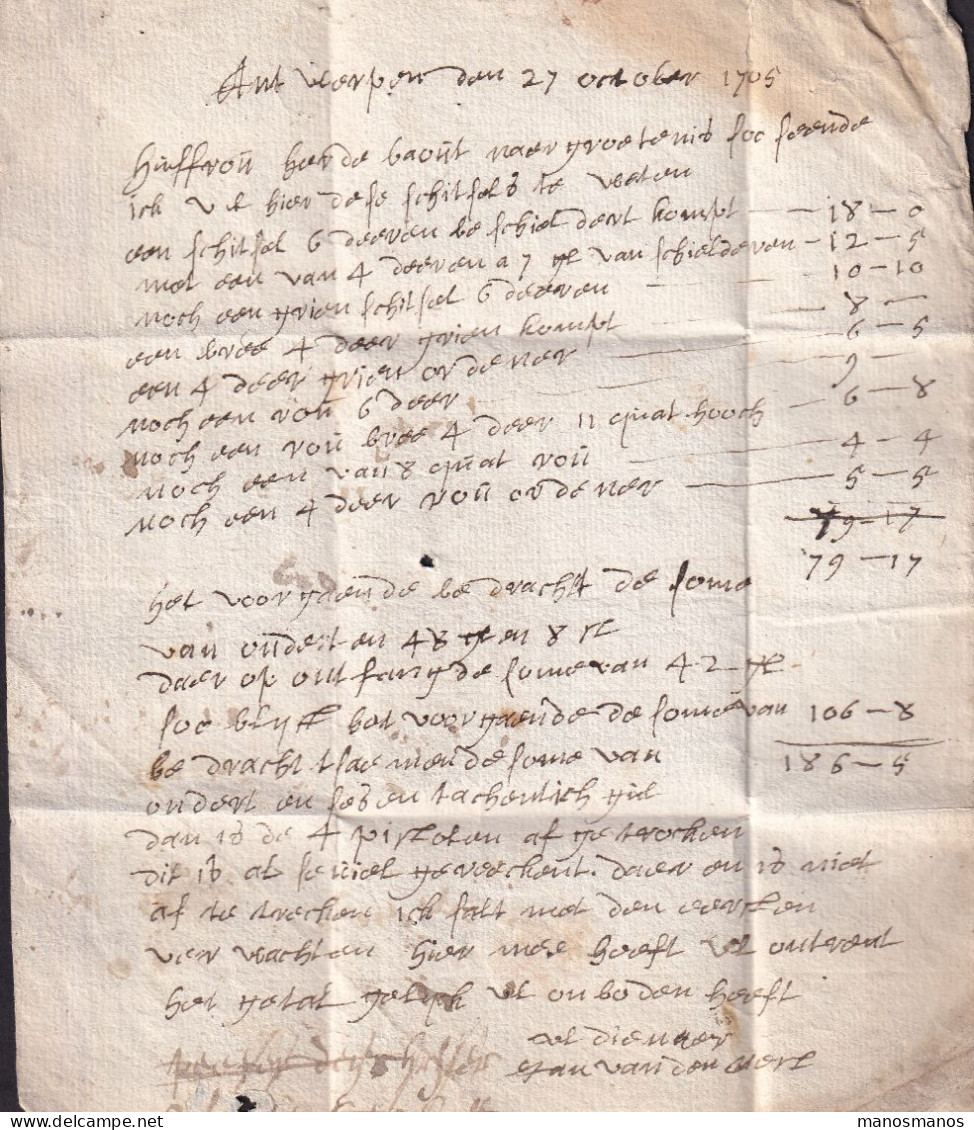 Antwerpen den 27 october 1705
Juffrou herde baout naer groetenis soo seende
ick vl hier dese schilsels te weten
een schilsel 6 deeren beschieldert kompt — 18 – 0
met een van 4 deeren a 7 gl van schielderen – 12 – 5
noch een grien schilsel 6 deeren — 10 – 10
een bree 4 deer grien kompt — 8 —
een 4 deer grien ordener — 6 – 5
noch een rou 6 deer — 9 –
noch een rou bree 4 deer 11 quat hooch – 6 – 8
noch een van 8 quat rou — 4 – 4
noch een 4 deer rou ordener — 5 – 5
79 – 17
79 – 17
het voorgaende bedracht de some
van onder en 48 gl en 8 st
daer op ontfang de some van 42 gl
soo blyft het voorgaende de some van 106 – 8
bedracht tsaemen de some van 186 – 5
ondert en sesentachentich gul
dan is de 4 pistolen af getrocken
dit is al seviel gereckent. daer en is niet
af te trecken ick salt met den eersten
verwachten hier mee heeft vl ontrent
het getal gelyck vl onboden heeft
vl dienaer
Jan van den
manosmanos